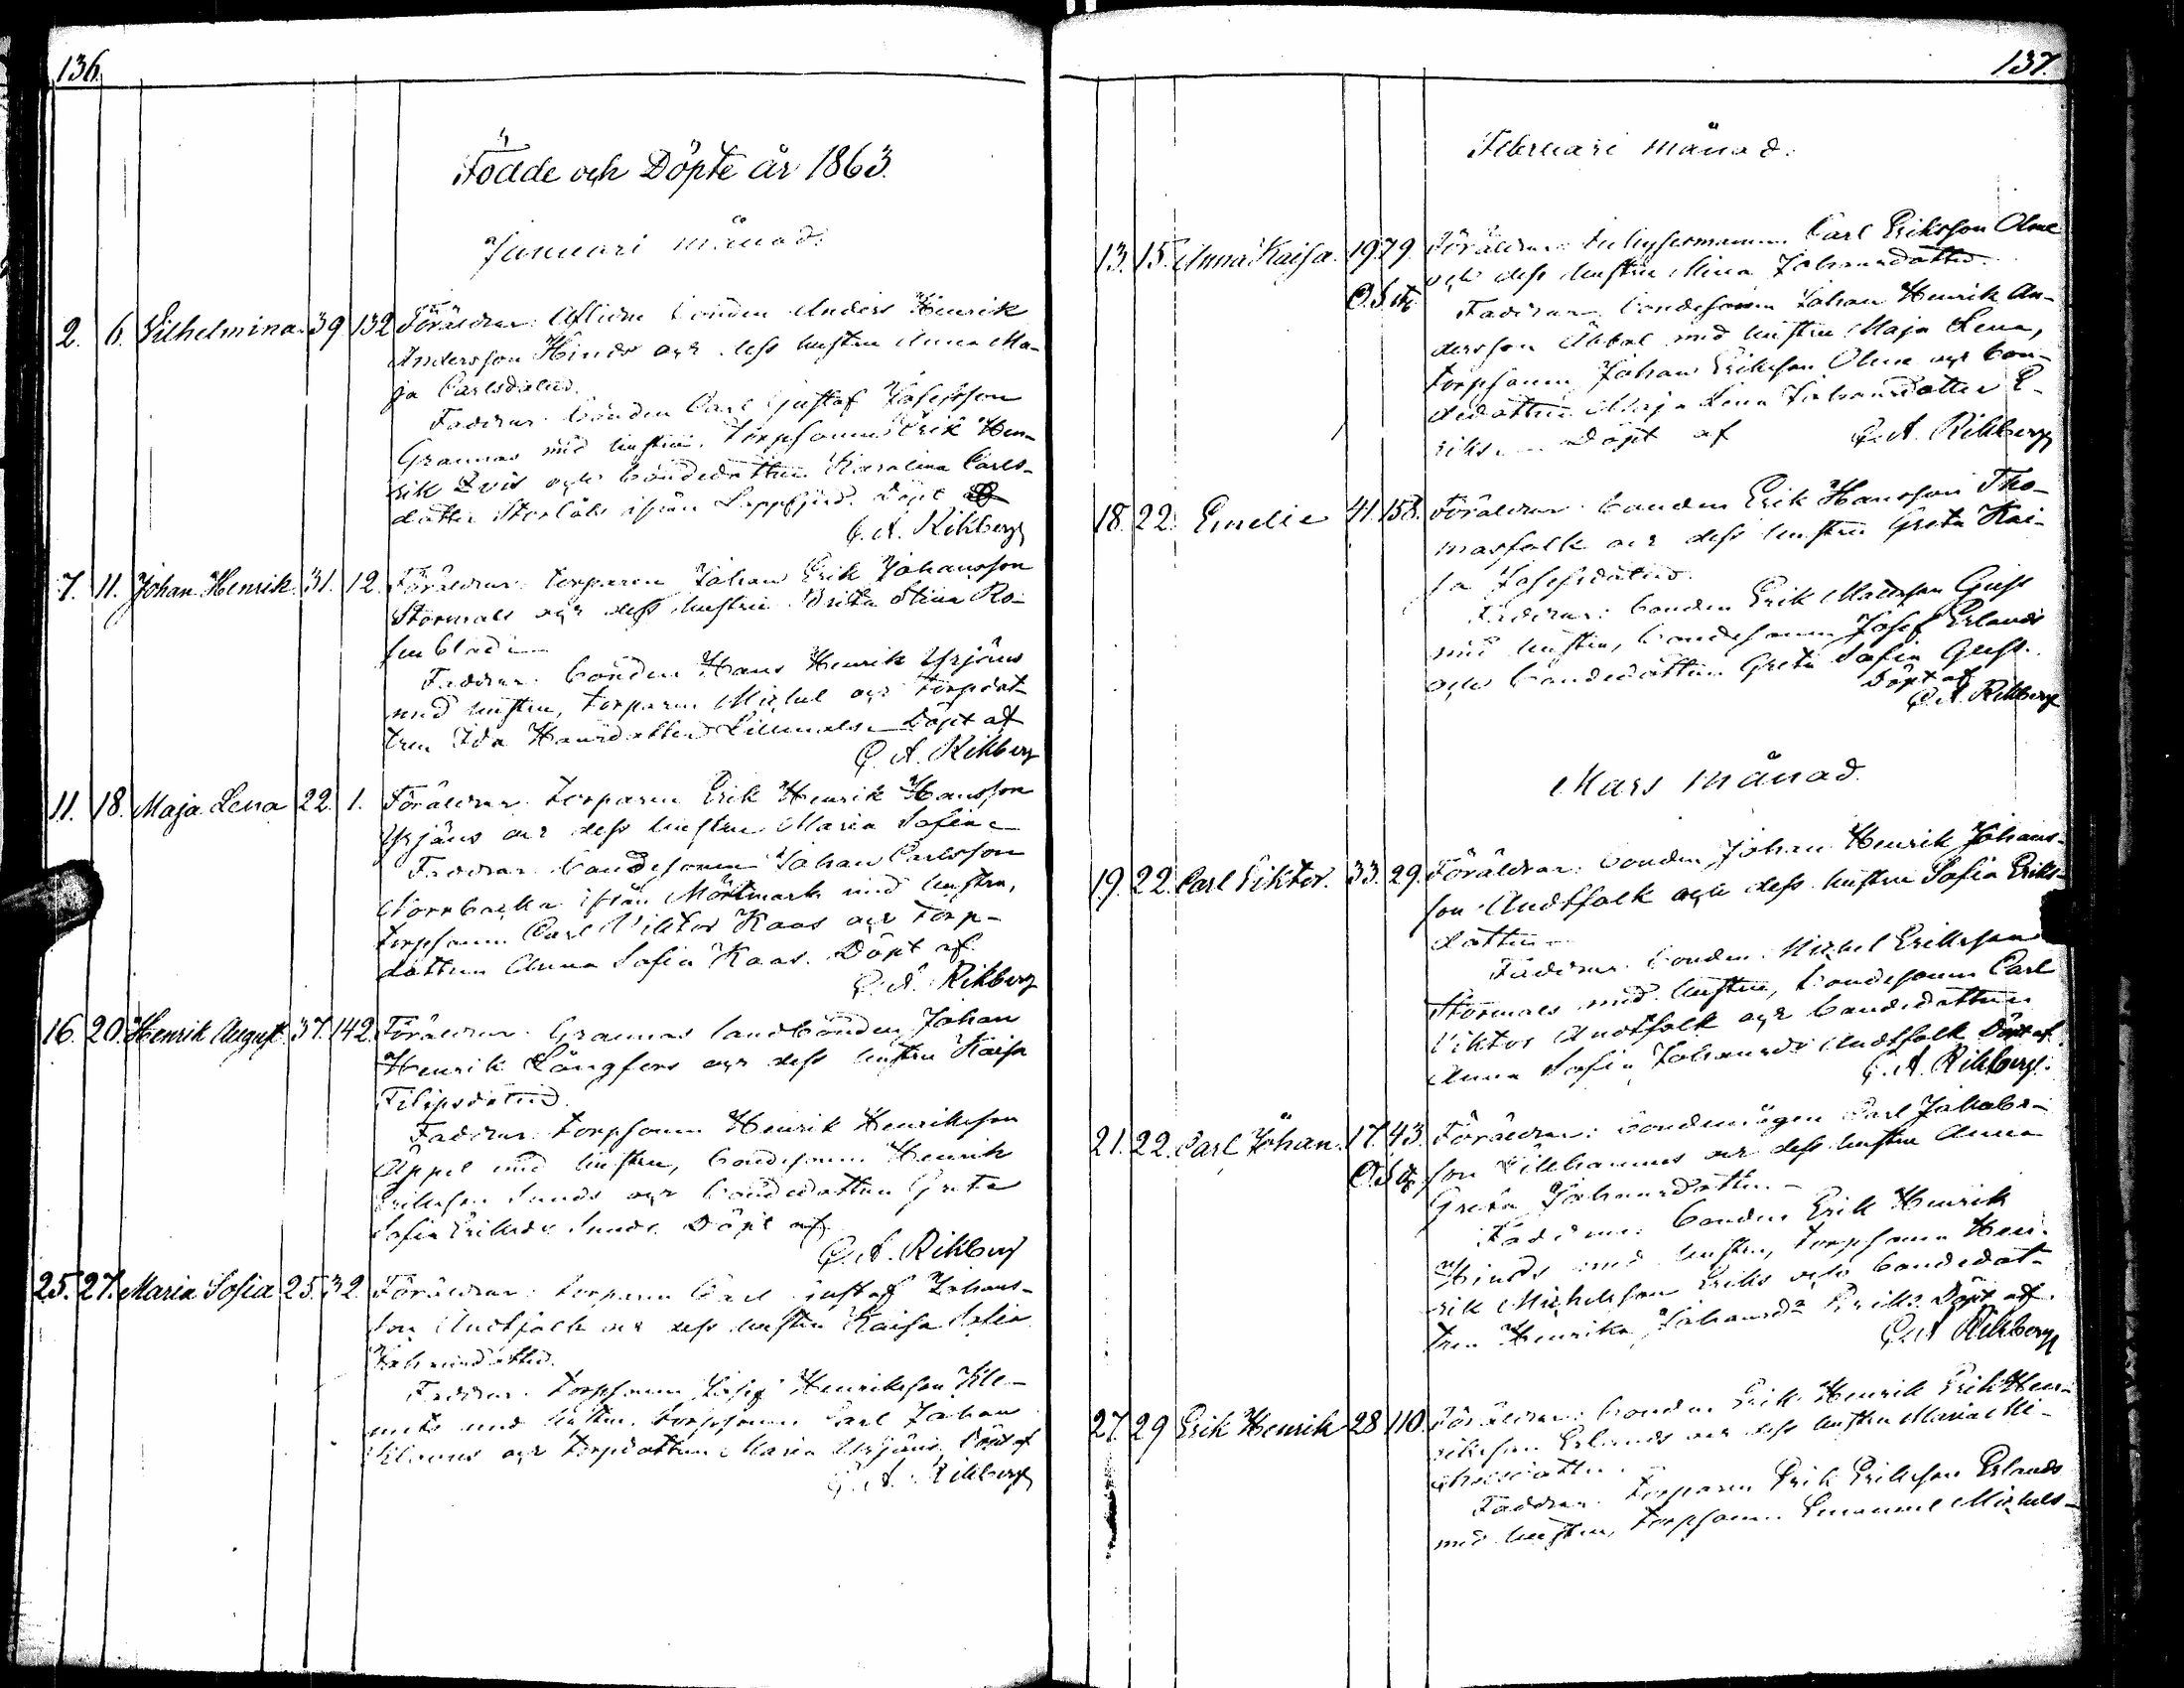 136.
Födde och Döpte år 1863.
Januari månad:
2. 6. Vilhelmina. 39. 132 Föräldrar: Aflidne bonden Anders Henrik
Andersson Hinds och dess hustru Anna Ma-
ja Carlsdotter.
Faddrar: bonden Carl Gustaf Josefsson
Grannas med hustru, torpsonen Erik Hen-
rik och bondedottren Karolina Carls-
dotter ifrån Lappfjerd. Döpt af
C. A. Rikberg
7. 11. Johan Henrik. 31. 12. Föräldrar: torparen Johan Erik Johansson
Stormals och dess hustru Brita Stina Ro-
senblad
Faddrar: bonden Hans Henrik Yrjäns
med hustru, torparen Michel och torpdot-
tren Ida Hansdotter Lillmals. Döpt af
C. A. Rikberg
11. 18. Maja Lena 22. 1. Föräldrar: torparen Erik Henrik Hansson
Yrjäns och dess hustru Maria Sofia
Faddrar: bondesonen Johan Carlsson
Norrbacka ifrån Mörtmark med hustru,
torpsonen Carl Viktor Kaas och torp-
dottren Anna Sofia Kaas. Döpt af
C. A. Rikberg
16. 20. Henrik August. 37. 142. Föräldrar: Grannas landbonden Johan
Henrik Långfors och dess hustru Kaisa
Filipsdotter.
Faddrar: torpsonen Henrik Henriksson
Äppel med hustru, bondesonen Henrik
Eriksson Sunds och bondedottren Greta
Sofia Eriksdr Sunds. Döpt af
C. A. Rikberg
25. 27. Maria Sofia 25. 32. Föräldrar: torparen Carl Gustaf Johans-
son Andtfolk och dess hustru Kaisa Sofia
Johansdotter.
Faddrar: torpsonen Josef Henriksson Kle-
mets med hustru, torpsonen Carl Johan
Klocars och torpdottren Maria Yrjäns. Döpt af
C. A. Rikberg
137.
Februari månad:
13. 15. Anna Kaisa. 19. 79. Föräldrar: Carl Eriksson Olme
och dess hustru Stina Johansdotter.
Faddrar: bondesonen Johan Henrik An-
dersson Abbal med hustru Maja Lena,
torpsonen Johan Eriksson Olme och bon-
dedottren Maja Lena Johansdotter E-
riks. Döpt af C. A. Rikberg
18. 22. Emelie 41. 158. Föräldrar: bonden Erik Hansson Tho-
masfolk och dess hustru Greta Kai-
sa Josefsdotter.
Faddrar: bonden Erik Mattsson Giss
med hustru, bondesonen Josef Erlands
och bondedottren Greta Sofia Giss.
Döpt af
C. A. Rikberg
Mars månad.
19. 22. Carl Viktor. 33. 29. Föräldrar: bonden Johan Henrik Johans-
son Andtfolk och dess hustru Sofia Eriks-
dotter
Faddrar: bonden Michel Eriksson
Stormals med hustru, bondesonen Carl
Viktor Andtfolk och bondedottren
Anna Sofia Johansdr Andtfolk Döpt af
C. A. Rikberg.
21. 22. Carl Johan. 17. 43. Föräldrar: bondemågen Carl Jakobs-
son Lillhannus och dess hustru Anna
Greta Johansdotter.
Faddrar: bonden Erik Henrik
Hinds med hustru, torpsonen Hen-
rik Michelsson Eriks och bondedot-
tren Henrika Johansdr Eriks. Döpt af
C. A. Rikberg
27. 29 Erik Henrik 28 110. Föräldrar: bonden Erik Henrik Erik Hen-
riksson Erlands och dess hustru Maria Mi-
chelsdotter.
Faddrar: torparen Erik Eriksson Erlands
med hustru, torpsonen Emanuel Michels-